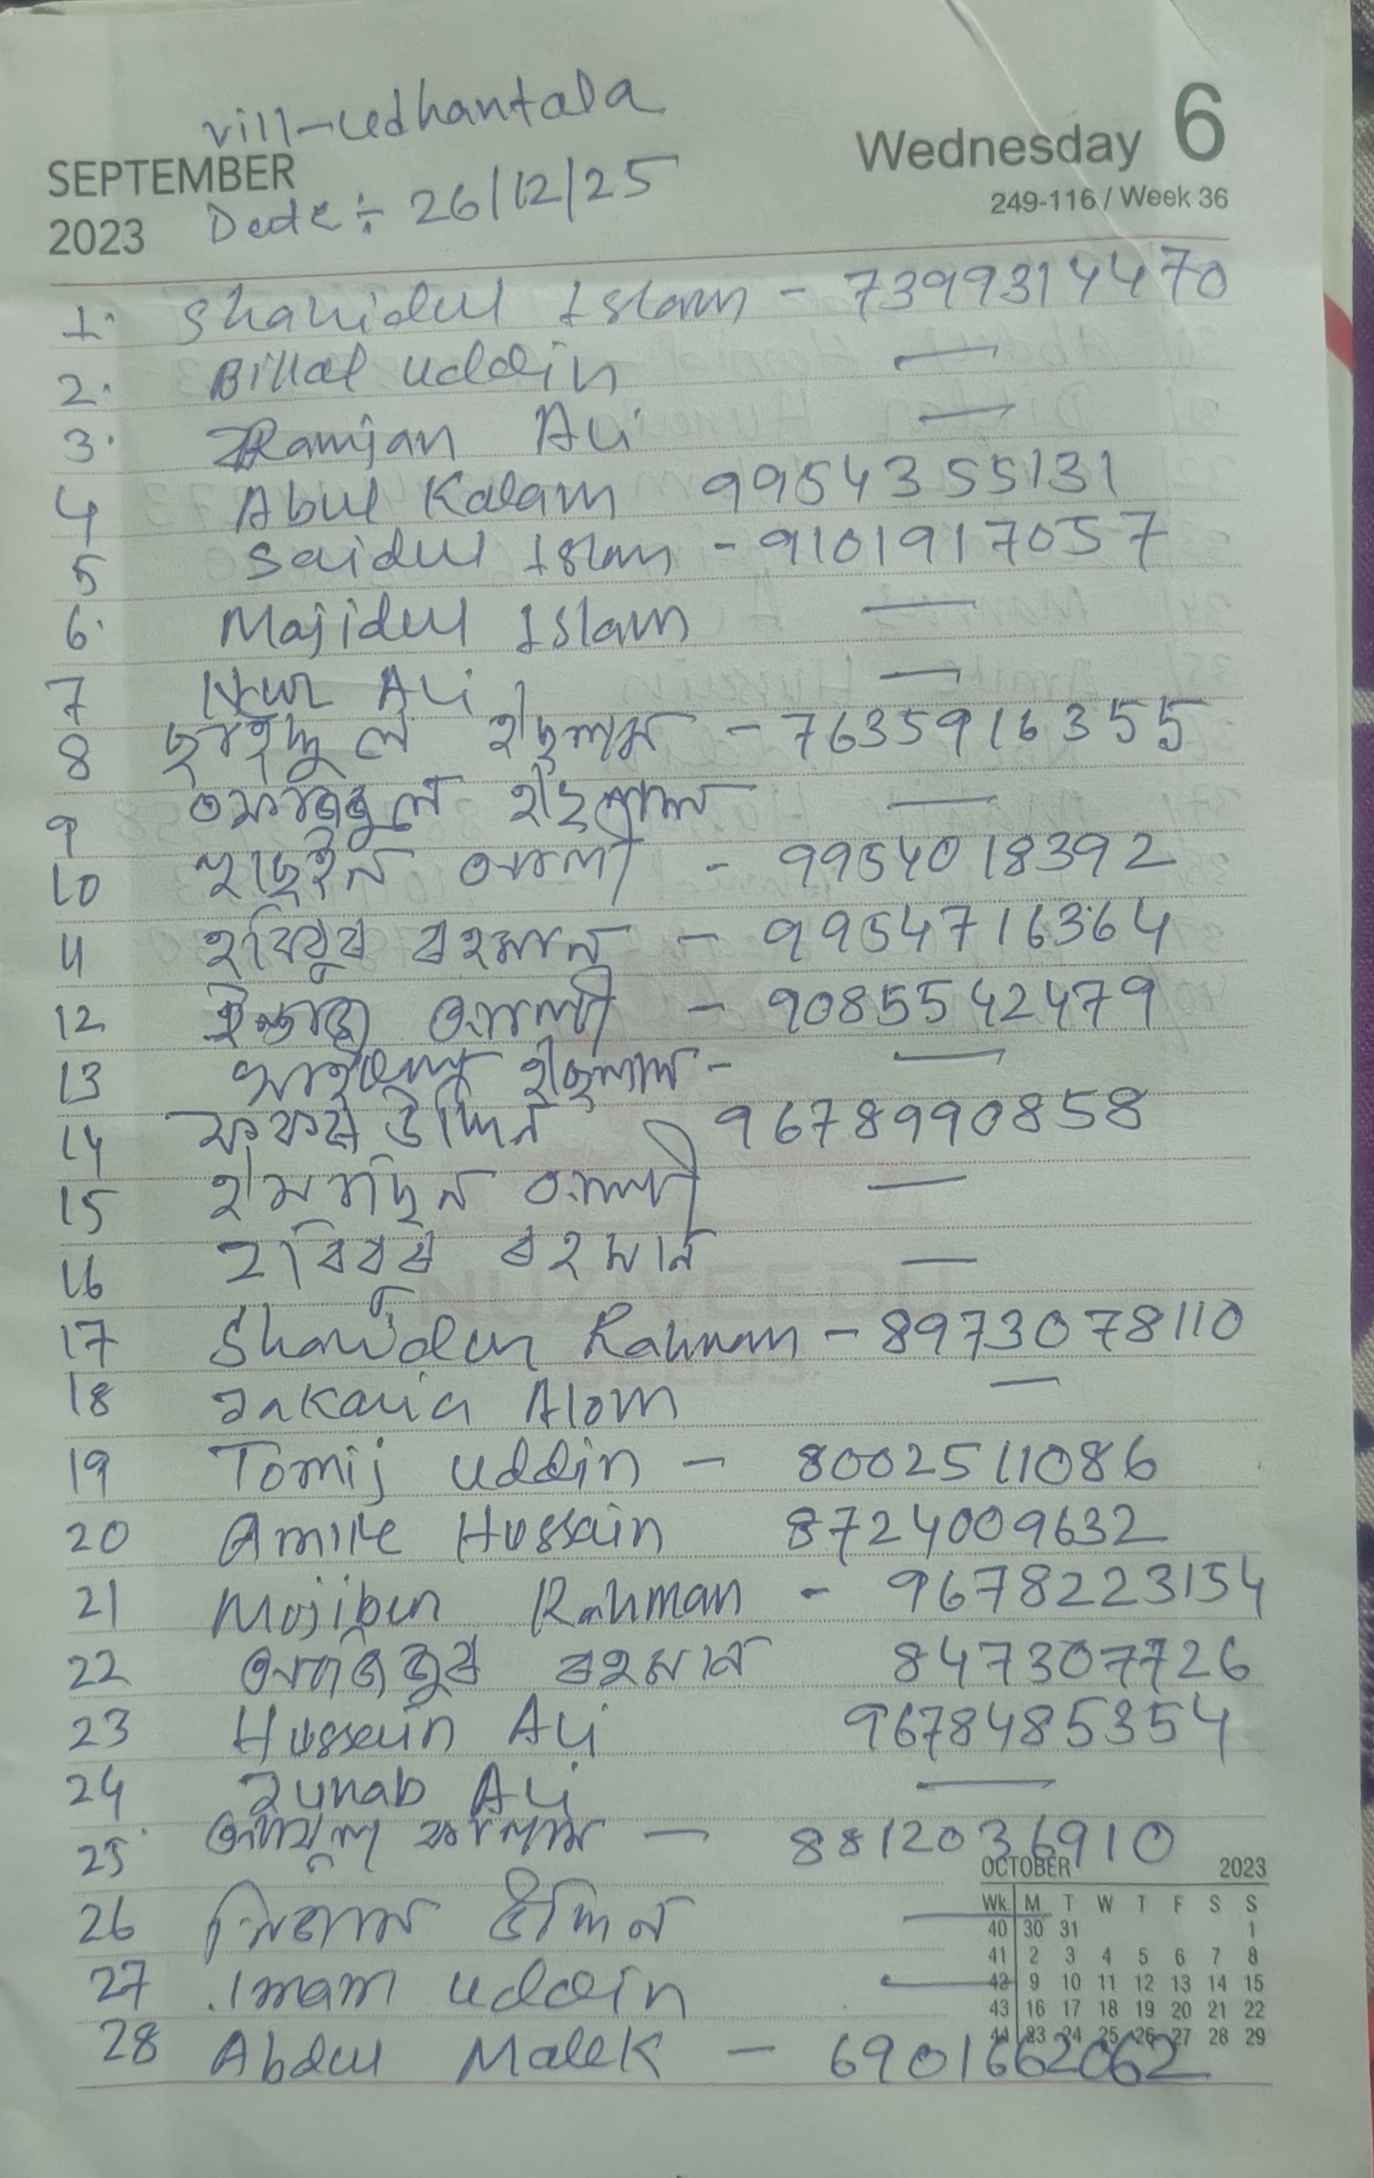 vill-Udhantala
SEPTEMBER
2023
Wednesday 6
249-116 / Week 36
Date ÷ 26/12/25
1. Shahidul Islam - 7399314470
2. Billal Uddin —
3. Ramjan Ali —
4 Abul Kalam 9954355131
5 Saidul Islam - 9101917057
6. Majidul Islam —
7 Nur Ali —
8 ইছলাম - 7635916355
9 —
10 হুছেইন আলী - 9954018392
11 হবিবুৰ ৰহমান - 9954716364
12 আলী - 9085542479
13 ইছলাম - —
14 উদ্দিন 9678990858
15 আলী —
16 হাবিবুৰ ৰহমান —
17 Shahidur Rahman - 8973078110
18 Jakaria Alom —
19 Tomij Uddin - 8002511086
20 Hussain 8724009632
21 Mojibur Rahman - 9678223154
22 আজিজুৰ ৰহমান 8473077726
23 Hussain Ali 9678485354
24 Junab Ali —
25 আবুল কালাম — 8812036910
26 উদ্দিন —
27 Imam Uddin —
28 Abdul Malek - 6901662062
OCTOBER 2023
Wk M T W T F S S
40 30 31 1
41 2 3 4 5 6 7 8
42 9 10 11 12 13 14 15
43 16 17 18 19 20 21 22
44 23 24 25 26 27 28 29